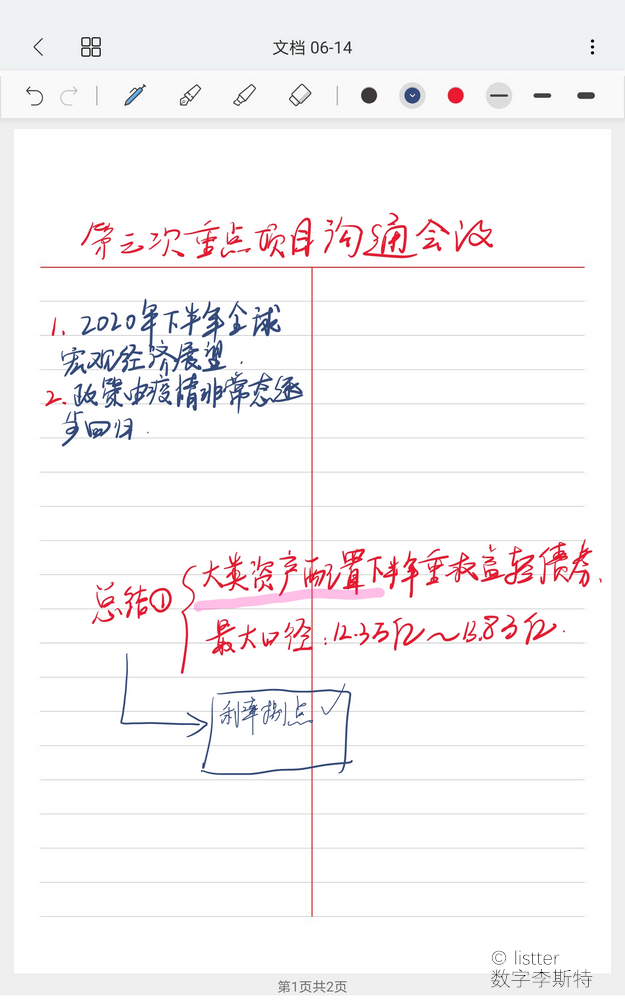 文档 06-14
第三次重点项目沟通会议
1. 2020年下半年全球
宏观经济展望.
2. 政策由疫情非常态逐
步回归.
总结①
大类资产配置下半年重权益轻债券.
最大口径:12.3万亿~13.83万亿.
利率拐点 ✓
© listter
数字李斯特
第1页共2页